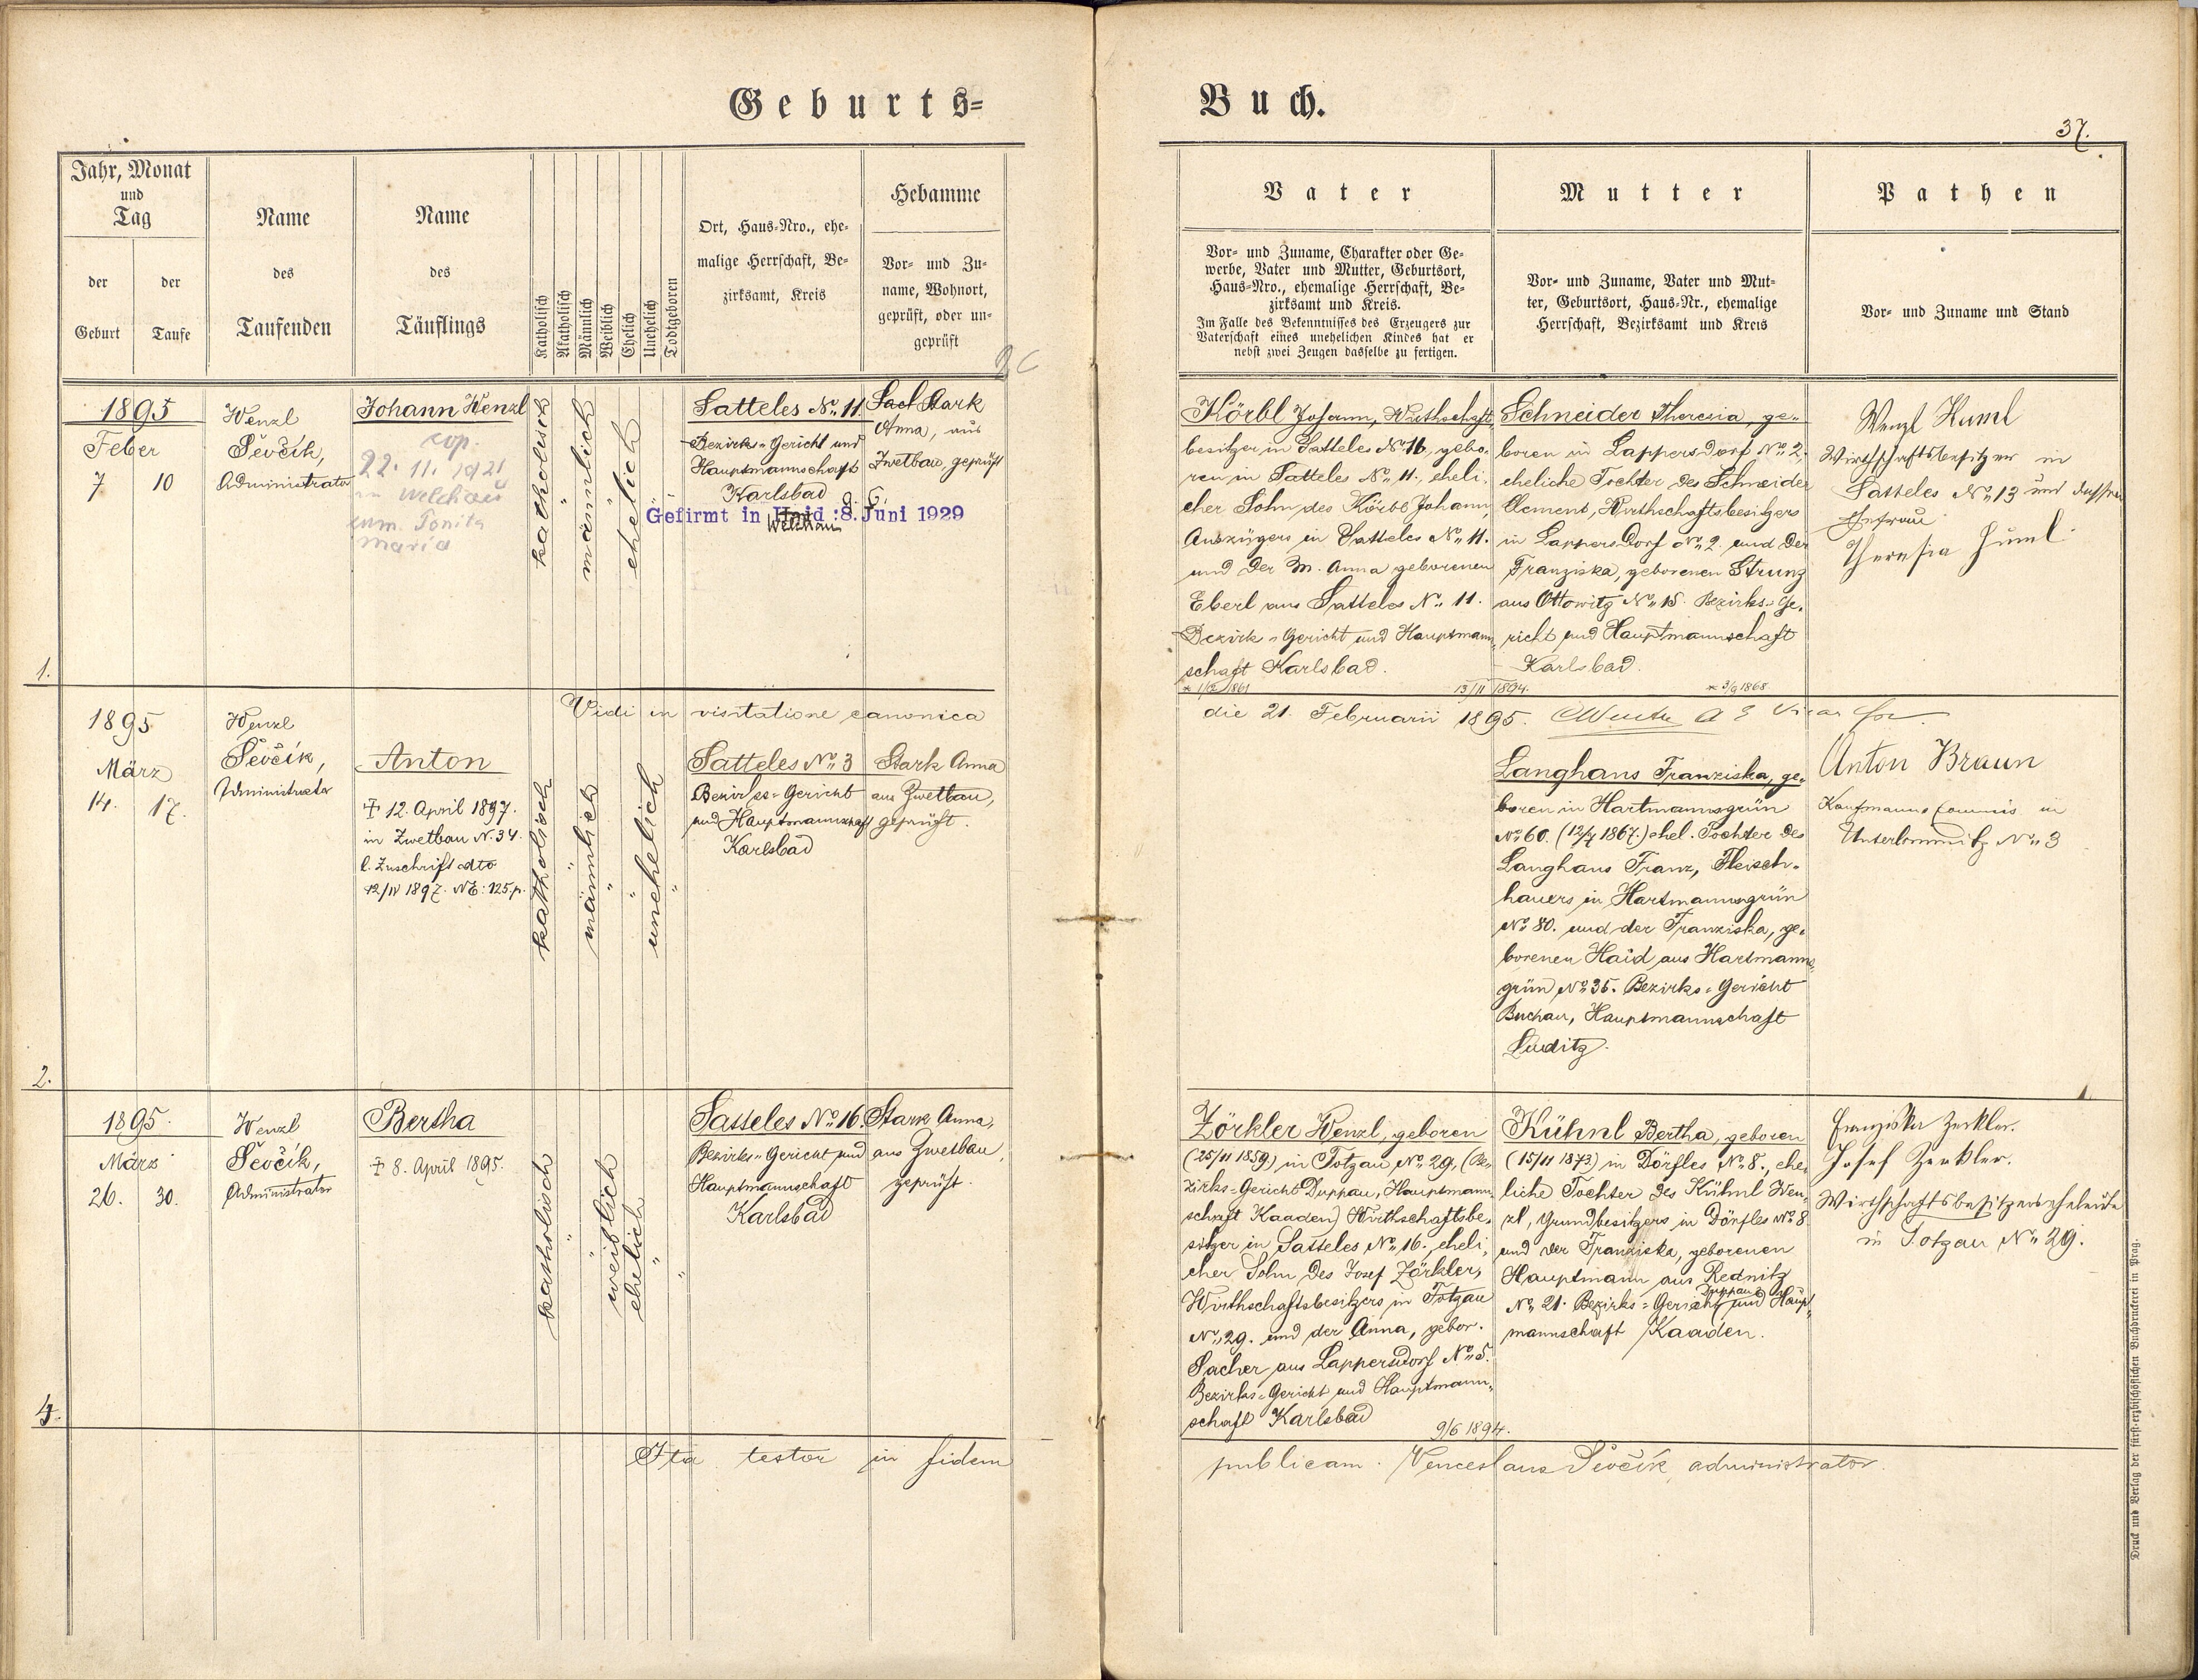 Geburts=
Buch.
37.
Jahr, Monat
und
Tag
der
Geburt
der
Taufe
Name
des
Taufenden
Name
des
Täuflings
Katholisch
Akatholisch
Männlich
Weiblich
Ehelich
Unehelich
Todtgeboren
Ort, Haus-Nro., ehe-
malige Herrschaft, Be-
zirksamt, Kreis
Hebamme
Vor- und Zu-
name, Wohnort,
geprüft, oder un-
geprüft
Vater
Vor- und Zuname, Charakter oder Ge-
werbe, Vater und Mutter, Geburtsort,
Haus-Nro., ehemalige Herrschaft, Be-
zirksamt und Kreis.
Im Falle des Bekenntnisses des Erzeugers zur
Vaterschaft eines unehelichen Kindes hat er
nebst zwei Zeugen dasselbe zu fertigen.
Mutter
Vor- und Zuname, Vater und Mut-
ter, Geburtsort, Haus-Nr., ehemalige
Herrschaft, Bezirksamt und Kreis
Pathen
Vor- und Zuname und Stand
1.
1895
Feber
7 10
Wenzl
Ševčík,
Administrator
Johann Wenzl
cop.
22. 11. 1921
in Welchau
cum. Ponita
Maria
katholisch
männlich
ehelich
Satteles No. 11
Bezirks-Gericht und
Hauptmannschaft
Karlsbad
Gefirmt in Haid :8. Juni 1929
Welchau
9. 6.
Stark
Anna, aus
Zwetbau, geprüft
Körbl Johann, Wirthschafts-
besitzer in Satteles No. 16, gebo-
ren in Satteles No. 11. eheli-
cher Sohn des Körbl Johann,
Auszügers in Satteles No. 11.
und der M. Anna geborenen
Eberl aus Satteles No. 11.
Bezirk-Gericht und Hauptmann-
schaft Karlsbad.
1861
13/11 1894.
Schneider Theresia, ge-
boren in Lappersdorf No. 2,
eheliche Tochter des Schneider
Clement, Wirthschaftsbesitzers
in Lappersdorf No. 2. und der
Franziska, geborenen Strunz
aus Ottowitz No. 15. Bezirks-Ge-
richt und Hauptmannschaft
Karlsbad.
* 3/9 1868
Wenzl Huml
Wirthschaftsbesitzer in
Satteles No. 13 und dessen
Ehefrau
Theresia Huml
Vidi in visitatione canonica
die 21. Februarii 1895.
2.
1895
März
14. 17.
Wenzl
Ševčík,
Administrator
Anton
† 12. April 1897.
in Zwetbau N. 34.
l. Zuschrift dto
12/IV 1897. NE: 125 p.
katholisch
männlich
unehelich
Satteles No. 3
Bezirks-Gericht
und Hauptmannschaft
Karlsbad
Stark Anna
aus Zwetbau,
geprüft.
Langhans Franziska, ge-
boren in Hartmannsgrün
No. 60. (12/7 1867.) ehel. Tochter des
Langhans Franz, Fleisch-
hauers in Hartmannsgrün
No. 80. und der Franziska, ge-
borenen Haid aus Hartmanns-
grün No. 35. Bezirks-Gericht
Buchau, Hauptmannschaft
Luditz.
Anton Braun
Kaufmanns Commis in
Unterlomitz No. 3
4.
1895.
März
26. 30.
Wenzl
Ševčík,
Administrator
Bertha
† 8. April 1895.
katholisch
weiblich
ehelich
Satteles No. 16.
Bezirks-Gericht und
Hauptmannschaft
Karlsbad
Stark Anna,
aus Zwetbau,
geprüft.
Zörkler Wenzl, geboren
(25/11 1859) in Totzau No. 29, (Be-
zirks-Gericht Duppau, Hauptmann-
schaft Kaaden) Wirthschaftsbe-
sitzer in Satteles No. 16. eheli-
cher Sohn des Josef Zörkler,
Wirthschaftsbesitzers in Totzau
No. 29. und der Anna, gebor.
Sacher aus Lappersdorf No. 5.
Bezirks-Gericht und Hauptmann-
schaft Karlsbad
9/6 1894.
Kühnl Bertha, geboren
(15/11 1873) in Dörfles No. 8., ehe-
liche Tochter des Kühnl Wen-
zl, Grundbesitzers in Dörfles No. 8
und der Franziska, geborenen
Hauptmann aus Rednitz
No. 21. Bezirks-Gericht Duppau und Haupt-
mannschaft Kaaden.
Franziska Zerkler.
Josef Zerkler.
Wirthschaftsbesitzerseheleute
in Totzau No. 29.
Ita testor in fidem
publicam. Venceslaus Ševčík, administrator.
Druck und Verlag der fürst-erzbischöflichen Buchdruckerei in Prag.